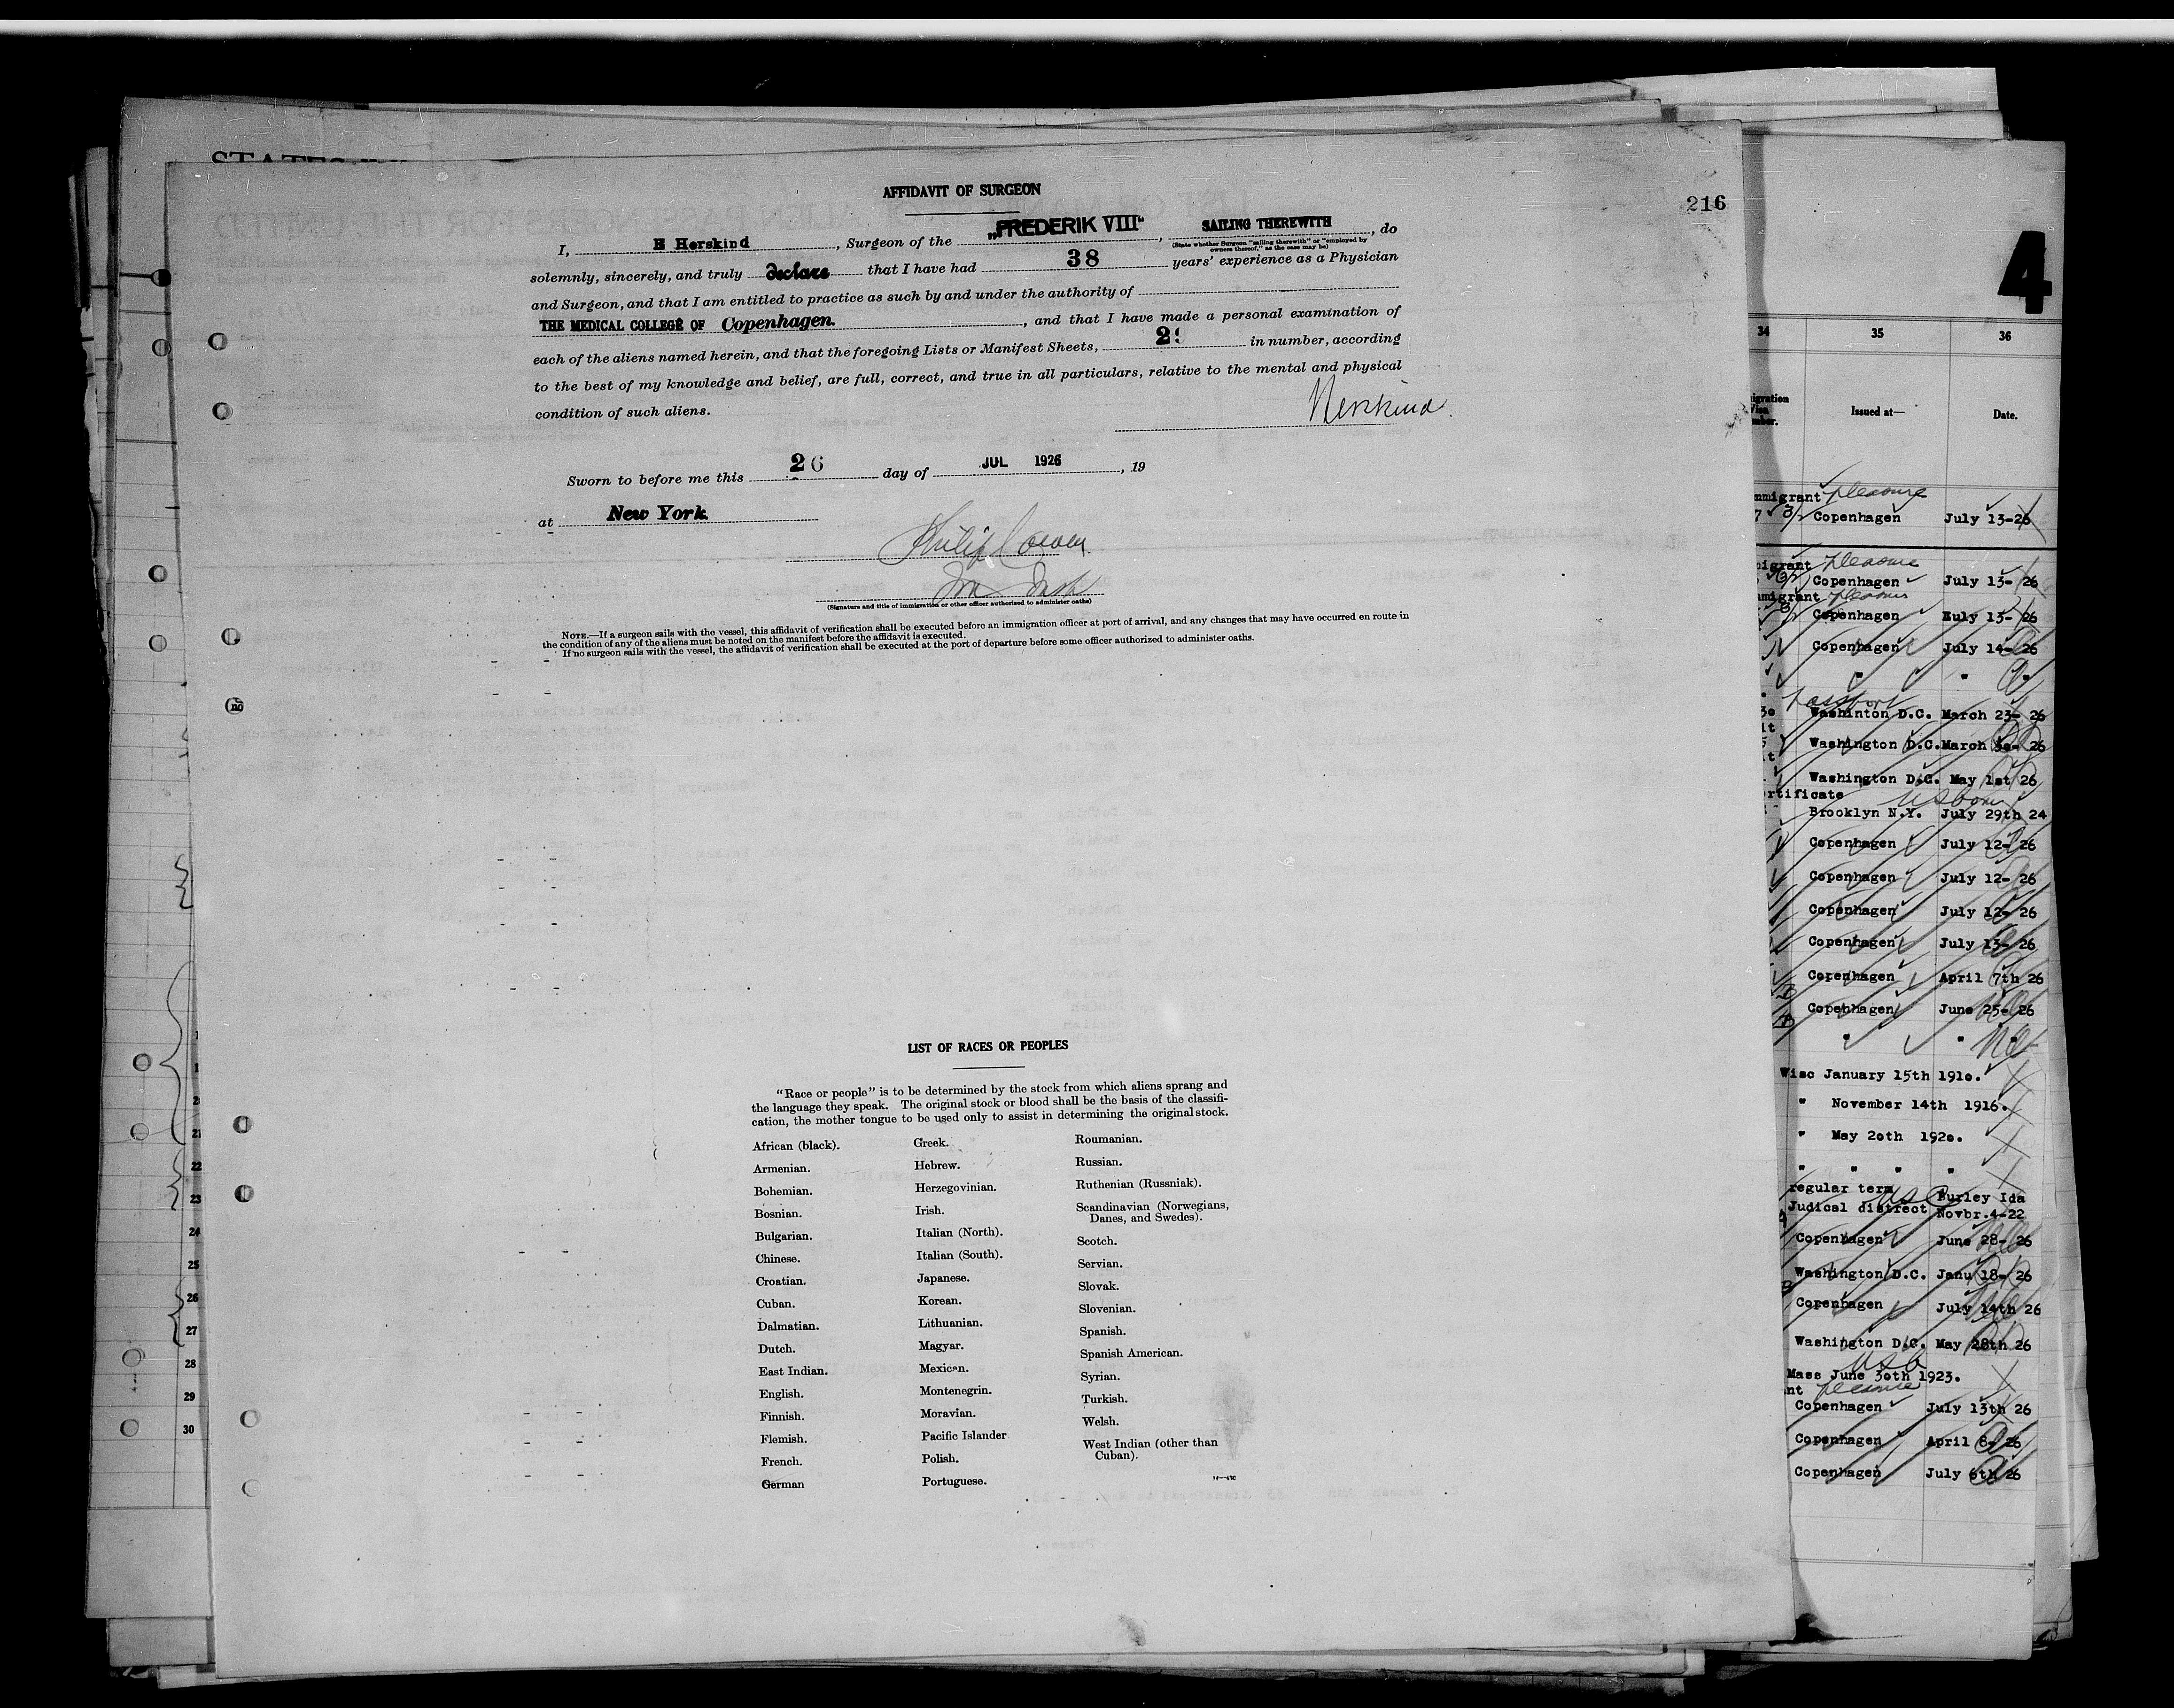 AFFIDAVIT OF SURGEON
216
I, H Herskind, Surgeon of the „FREDERIK VIII“, SAILING THEREWITH, do
(State whether Surgeon "sailing therewith" or "employed by owners thereof," as the case may be)
solemnly, sincerely, and truly declare that I have had 38 years' experience as a Physician
and Surgeon, and that I am entitled to practice as such by and under the authority of
THE MEDICAL COLLEGE OF Copenhagen., and that I have made a personal examination of
each of the aliens named herein, and that the foregoing Lists or Manifest Sheets, in number, according
to the best of my knowledge and belief, are full, correct, and true in all particulars, relative to the mental and physical
condition of such aliens.
Herskind.
Sworn to before me this 26 day of JUL 1926, 19
at New York.
Philip Cowen
(Signature and title of immigration or other officer authorized to administer oaths)
NOTE.—If a surgeon sails with the vessel, this affidavit of verification shall be executed before an immigration officer at port of arrival, and any changes that may have occurred en route in
the condition of any of the aliens must be noted on the manifest before the affidavit is executed.
If no surgeon sails with the vessel, the affidavit of verification shall be executed at the port of departure before some officer authorized to administer oaths.
LIST OF RACES OR PEOPLES
"Race or people" is to be determined by the stock from which aliens sprang and
the language they speak. The original stock or blood shall be the basis of the classifi-
cation, the mother tongue to be used only to assist in determining the original stock.
African (black).
Armenian.
Bohemian.
Bosnian.
Bulgarian.
Chinese.
Croatian.
Cuban.
Dalmatian.
Dutch.
East Indian.
English.
Finnish.
Flemish.
French.
German
Greek.
Hebrew.
Herzegovinian.
Irish.
Italian (North).
Italian (South).
Japanese.
Korean.
Lithuanian.
Magyar.
Mexican.
Montenegrin.
Moravian.
Pacific Islander
Polish.
Portuguese.
Roumanian.
Russian.
Ruthenian (Russniak).
Scandinavian (Norwegians,
Danes, and Swedes).
Scotch.
Servian.
Slovak.
Slovenian.
Spanish.
Spanish American.
Syrian.
Turkish.
Welsh.
West Indian (other than
Cuban).
21
22
23
24
25
26
27
28
29
30
4
34 35 36
Issued at— Date.
pleasure
Copenhagen July 13-26
pleasure
Copenhagen July 13- 26
Copenhagen Zuly 13- 26
Copenhagen July 14- 26
" "
passport
Washinton D.C. March 23- 26
Washington D.C. March 3o- 26
Washington D.C. May 1st 26
Brooklyn N.Y. July 29th 24
Copenhagen July 12- 26
Copenhagen July 12- 26
Copenhagen July 12- 26
Copenhagen July 13- 26
Copenhagen April 7th 26
Copenhagen June 25- 26
" "
Wisc January 15th 191o.
" November 14th 1916.
" May 2oth 192o.
" " " "
regular term Burley Ida
Judical distrect Novbr.4-22
Copenhagen June 28- 26
Washington D.C. Janu 18- 26
Copenhagen July 14th 26
Washington D.C. May 28th 26
Mass June 3oth 1923.
pleasure
Copenhagen July 13th 26
Copenhagen April 8- 26
Copenhagen July 6th 26